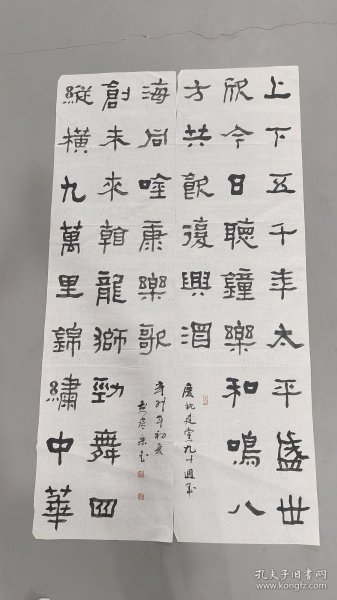 上下五千年太平盛世
欣今日聽鐘樂和鳴八
方共飲復興酒
慶祝建黨九十週年
縱橫九萬里錦繡中華
創未來看龍獅勁舞四
海同唫康樂歌
辛卯年初夏
孔夫子旧书网